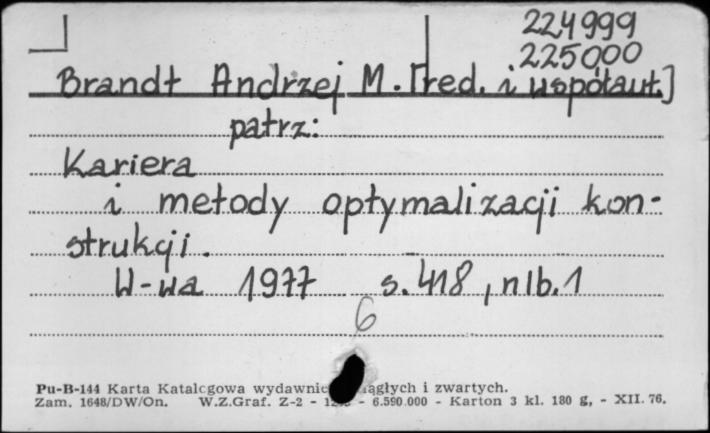 224999
225000
Brandt Andrzej M. [red. i współaut.]
patrz:
Kariera
i metody optymalizacji kon-
strukcji.
W-wa 1977 s. 418, nlb. 1
6
Pu-B-144 Karta Katalogowa wydawnic ągłych i zwartych.
Zam. 1648/DW/On. W.Z.Graf. Z-2 - - 6.590.000 - Karton 3 kl. 180 g, - XII. 76.